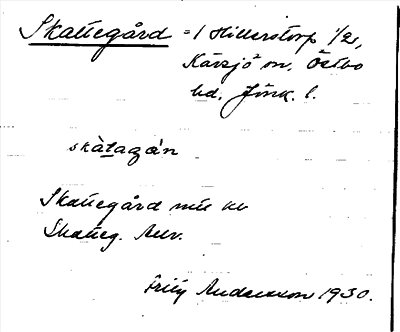 Skattegård = 1 Hillerstorp 1/2,
Kävsjö sn, Östbo
hd. Jönk. l.
skàtagán
Skattegård
Skatteg.
Andersson 1930.